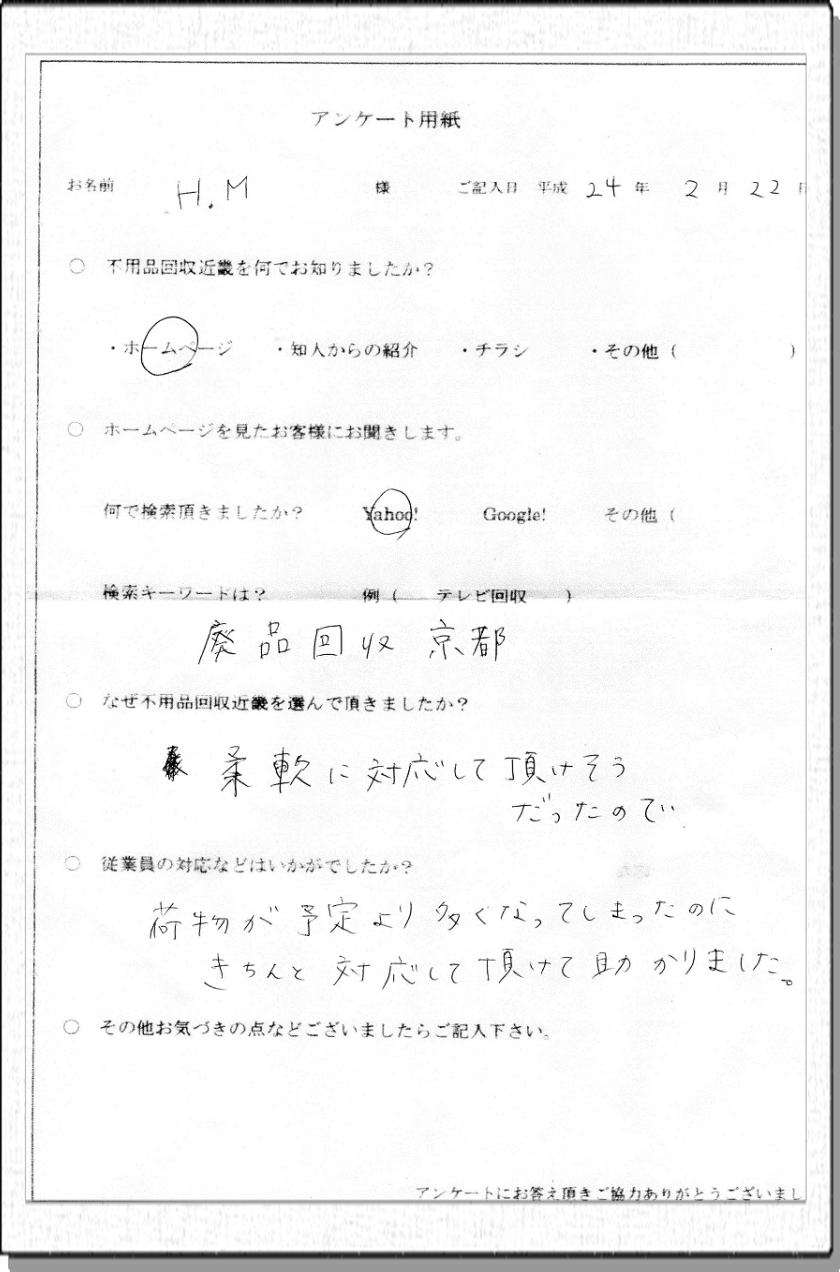 アンケート用紙
お名前 H.M 様 ご記入日 平成 24 年 2 月 22 日
○ 不用品回収近畿を何でお知りましたか？
・ホームページ ・知人からの紹介 ・チラシ ・その他（ ）
○ ホームページを見たお客様にお聞きします。
何で検索頂きましたか？ Yahoo! Google! その他（
検索キーワードは？ 例（ テレビ回収 ）
廃品回収 京都
○ なぜ不用品回収近畿を選んで頂きましたか？
柔軟に対応して頂けそう
だったので
○ 従業員の対応などはいかがでしたか？
荷物が予定より多くなってしまったのに
きちんと対応して頂けて助かりました。
○ その他お気づきの点などございましたらご記入下さい。
アンケートにお答え頂きご協力ありがとうございまし